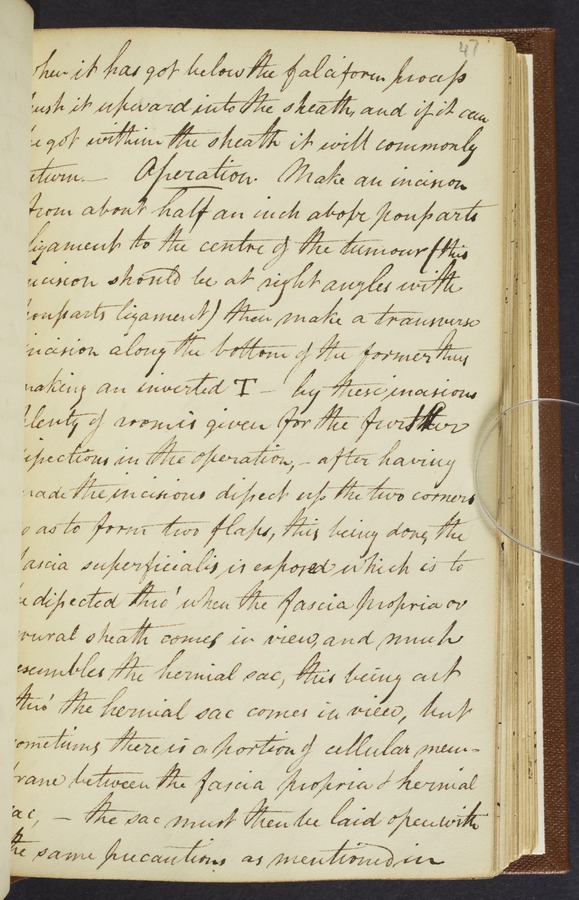 47
when it has got below the falciform process
push it upward into the sheath, and if it can
be got within the sheath it will commonly
return — Operation. Make an incision
from about half an inch above pouparts
ligament to the centre of the tumour (this
incision should be at right angles with
pouparts ligament) then make a transverse
incision along the bottom of the former thus
making an inverted T — by these incisions
plenty of room is given for the further
dissections in the operation, — after having
made the incisions dissect up the two corners
so as to form two flaps, this being done, the
fascia superficialis is exposed which is to
be dissected thro' when the fascia propria or
crural sheath comes in view, and much
resembles the hernial sac, this being cut
thro' the hernial sac comes in view, but
sometimes there is a portion of cellular mem-
brane between the fascia propria & hernial
sac, — the sac must then be laid open with
the same precautions as mentioned in